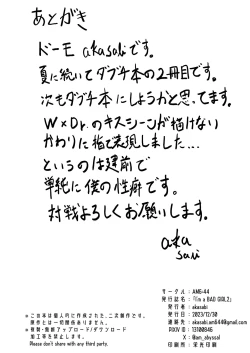 あとがき
ドーモ akasakiです。
夏に続いてダブチ本の2冊目です。
次もダブチ本にしようかと思ってます。
W×Dr.のキスシーンが描けない
かわりに指で表現しました…
というのは建前で
単純に僕の性癖です。
対戦よろしくお願いします。
aka
saki
サークル：AM6-44
発行誌名：『I'm a BAD GIRL2』
発行者：akasaki
発行日：2023/12/30
連絡先：akasaki.am644@gmail.com
PIXIV ID：13100846
Twitter：@am_abyssal
印刷所：栄光印刷
※この本は個人的に作成された、二次創作です。
原作とは一切関係ありません。
※複製・無断アップロード/ダウンロード
加工等を禁止します。
Please don't share with any third party.